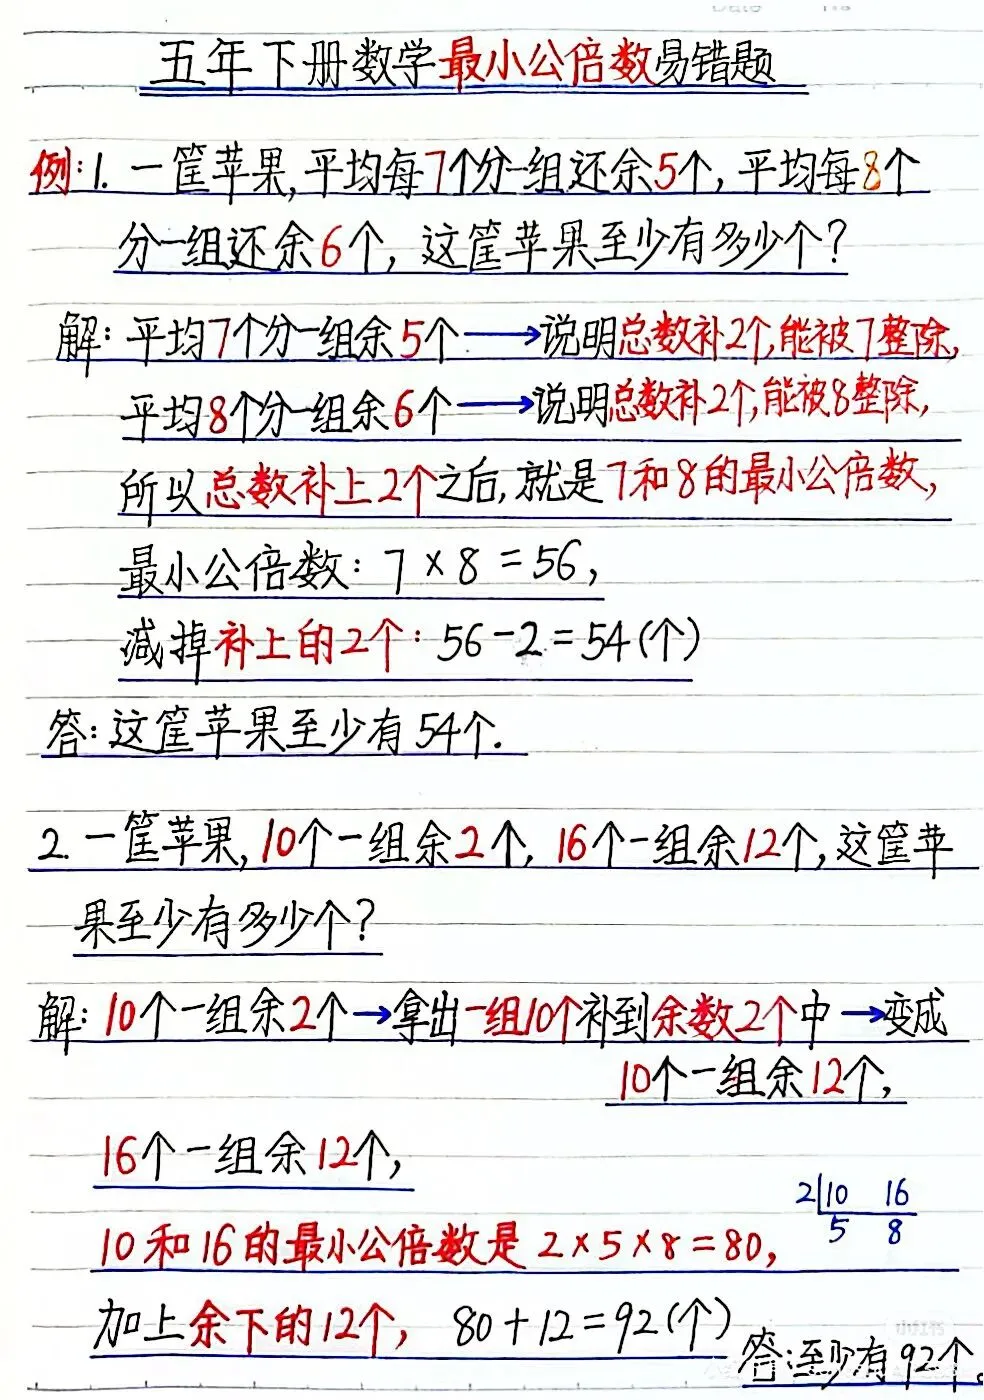 五年下册数学最小公倍数易错题
例:1. 一筐苹果,平均每7个分一组还余5个,平均每8个
分一组还余6个,这筐苹果至少有多少个?
解:平均7个分一组余5个→说明总数补2个,能被7整除,
平均8个分一组余6个→说明总数补2个,能被8整除,
所以总数补上2个之后,就是7和8的最小公倍数,
最小公倍数:7×8=56,
减掉补上的2个:56-2=54(个)
答:这筐苹果至少有54个.
2. 一筐苹果,10个一组余2个,16个一组余12个,这筐苹
果至少有多少个?
解:10个一组余2个→拿出一组10个补到余数2个中→变成
10个一组余12个,
16个一组余12个,
2 10 16
5 8
10和16的最小公倍数是2×5×8=80,
加上余下的12个,80+12=92(个)
答:至少有92个。
小红书